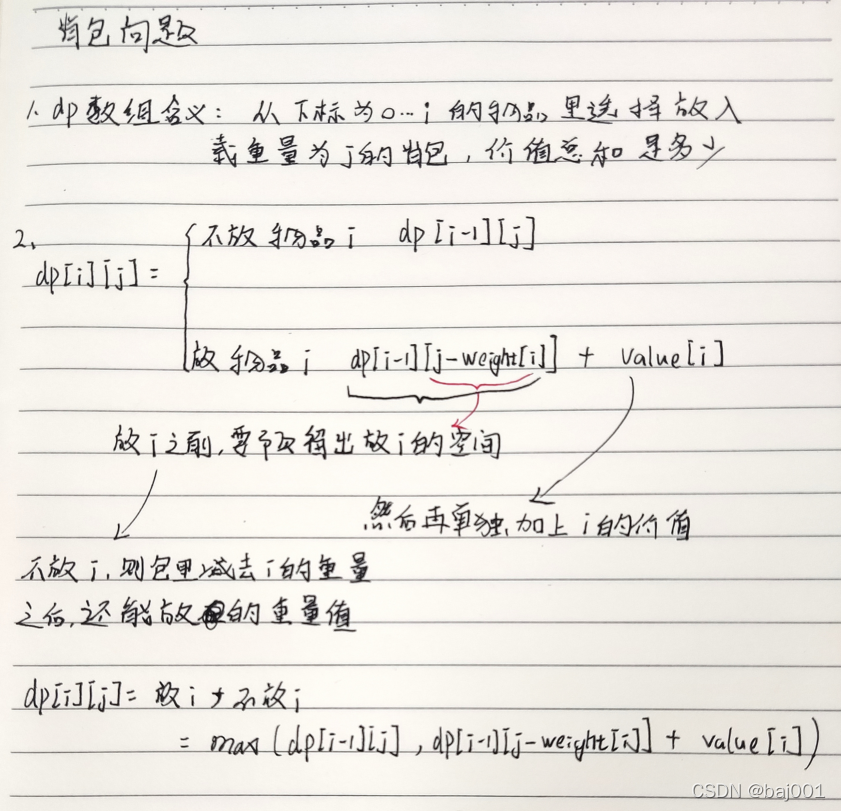 背包问题
1. dp数组含义：从下标为0…i的物品里选择放入
载重量为j的背包，价值总和是多少
2、
不放物品i dp[i-1][j]
dp[i][j] =
放物品i dp[i-1][j-weight[i]] + value[i]
放i之前，要预留出放i的空间
然后再单独加上i的价值
不放i，则包里减去i的重量
之后，还能放的重量值
dp[i][j] = 放i + 不放i
= max(dp[i-1][j], dp[i-1][j-weight[i]] + value[i])
CSDN @baj001